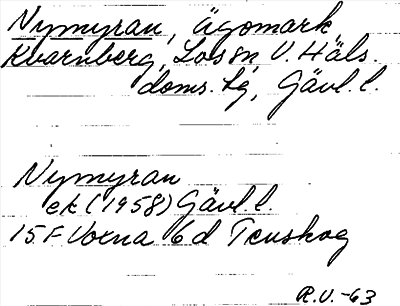 Nymyran, ägomark
Kvarnberg, Los sn, V. Häls.
doms. lg, Gävl. l.
Nymyran
ek (1958) Gävl. l.
15 F Voxna 6 d Tenskog
R.U. -63